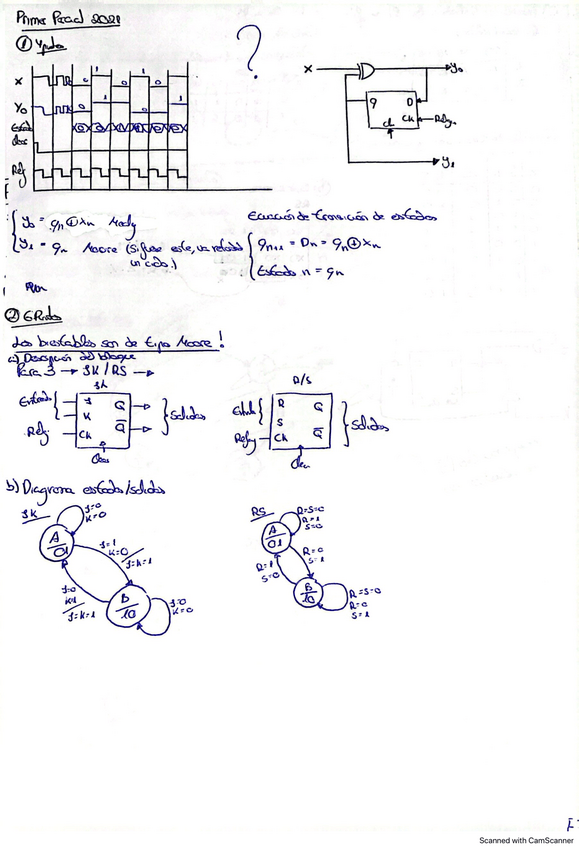 Primer Parcial 2021
① 4 puntos
?
X 0 1 0 1 0 1
Y₀ 0 1 0 1
Estado
Clear
Reloj
X Y₀
q D
Ck Reloj
cl
Y₁
Y₀ = qₙ ⊕ Xₙ Mealy
Y₁ = qₙ Moore (Si fuese este, va retrasado
un ciclo.)
Ecuación de transición de estados
qₙ₊₁ = Dₙ = qₙ ⊕ Xₙ
Estado n = qₙ
② 6 Puntos
Los biestables son de tipo Moore!
a) Descripción del bloque
Para 3 → JK / RS →
JK
Entradas J Q
K Q̅ Salidas
Reloj Ck
Clear
R/S
R Q
S Q̅ Salidas
Reloj Ck
Clear
b) Diagrama estados/salidas
JK
J=0
K=0
A/01
J=1
K=0
J=K=1
J=0
K=1
J=K=1
B/10
J=0
K=0
RS
R=S=0
R=1
S=0
A/01
R=0
S=1
R=1
S=0
B/10
R=S=0
R=0
S=1
Scanned with CamScanner